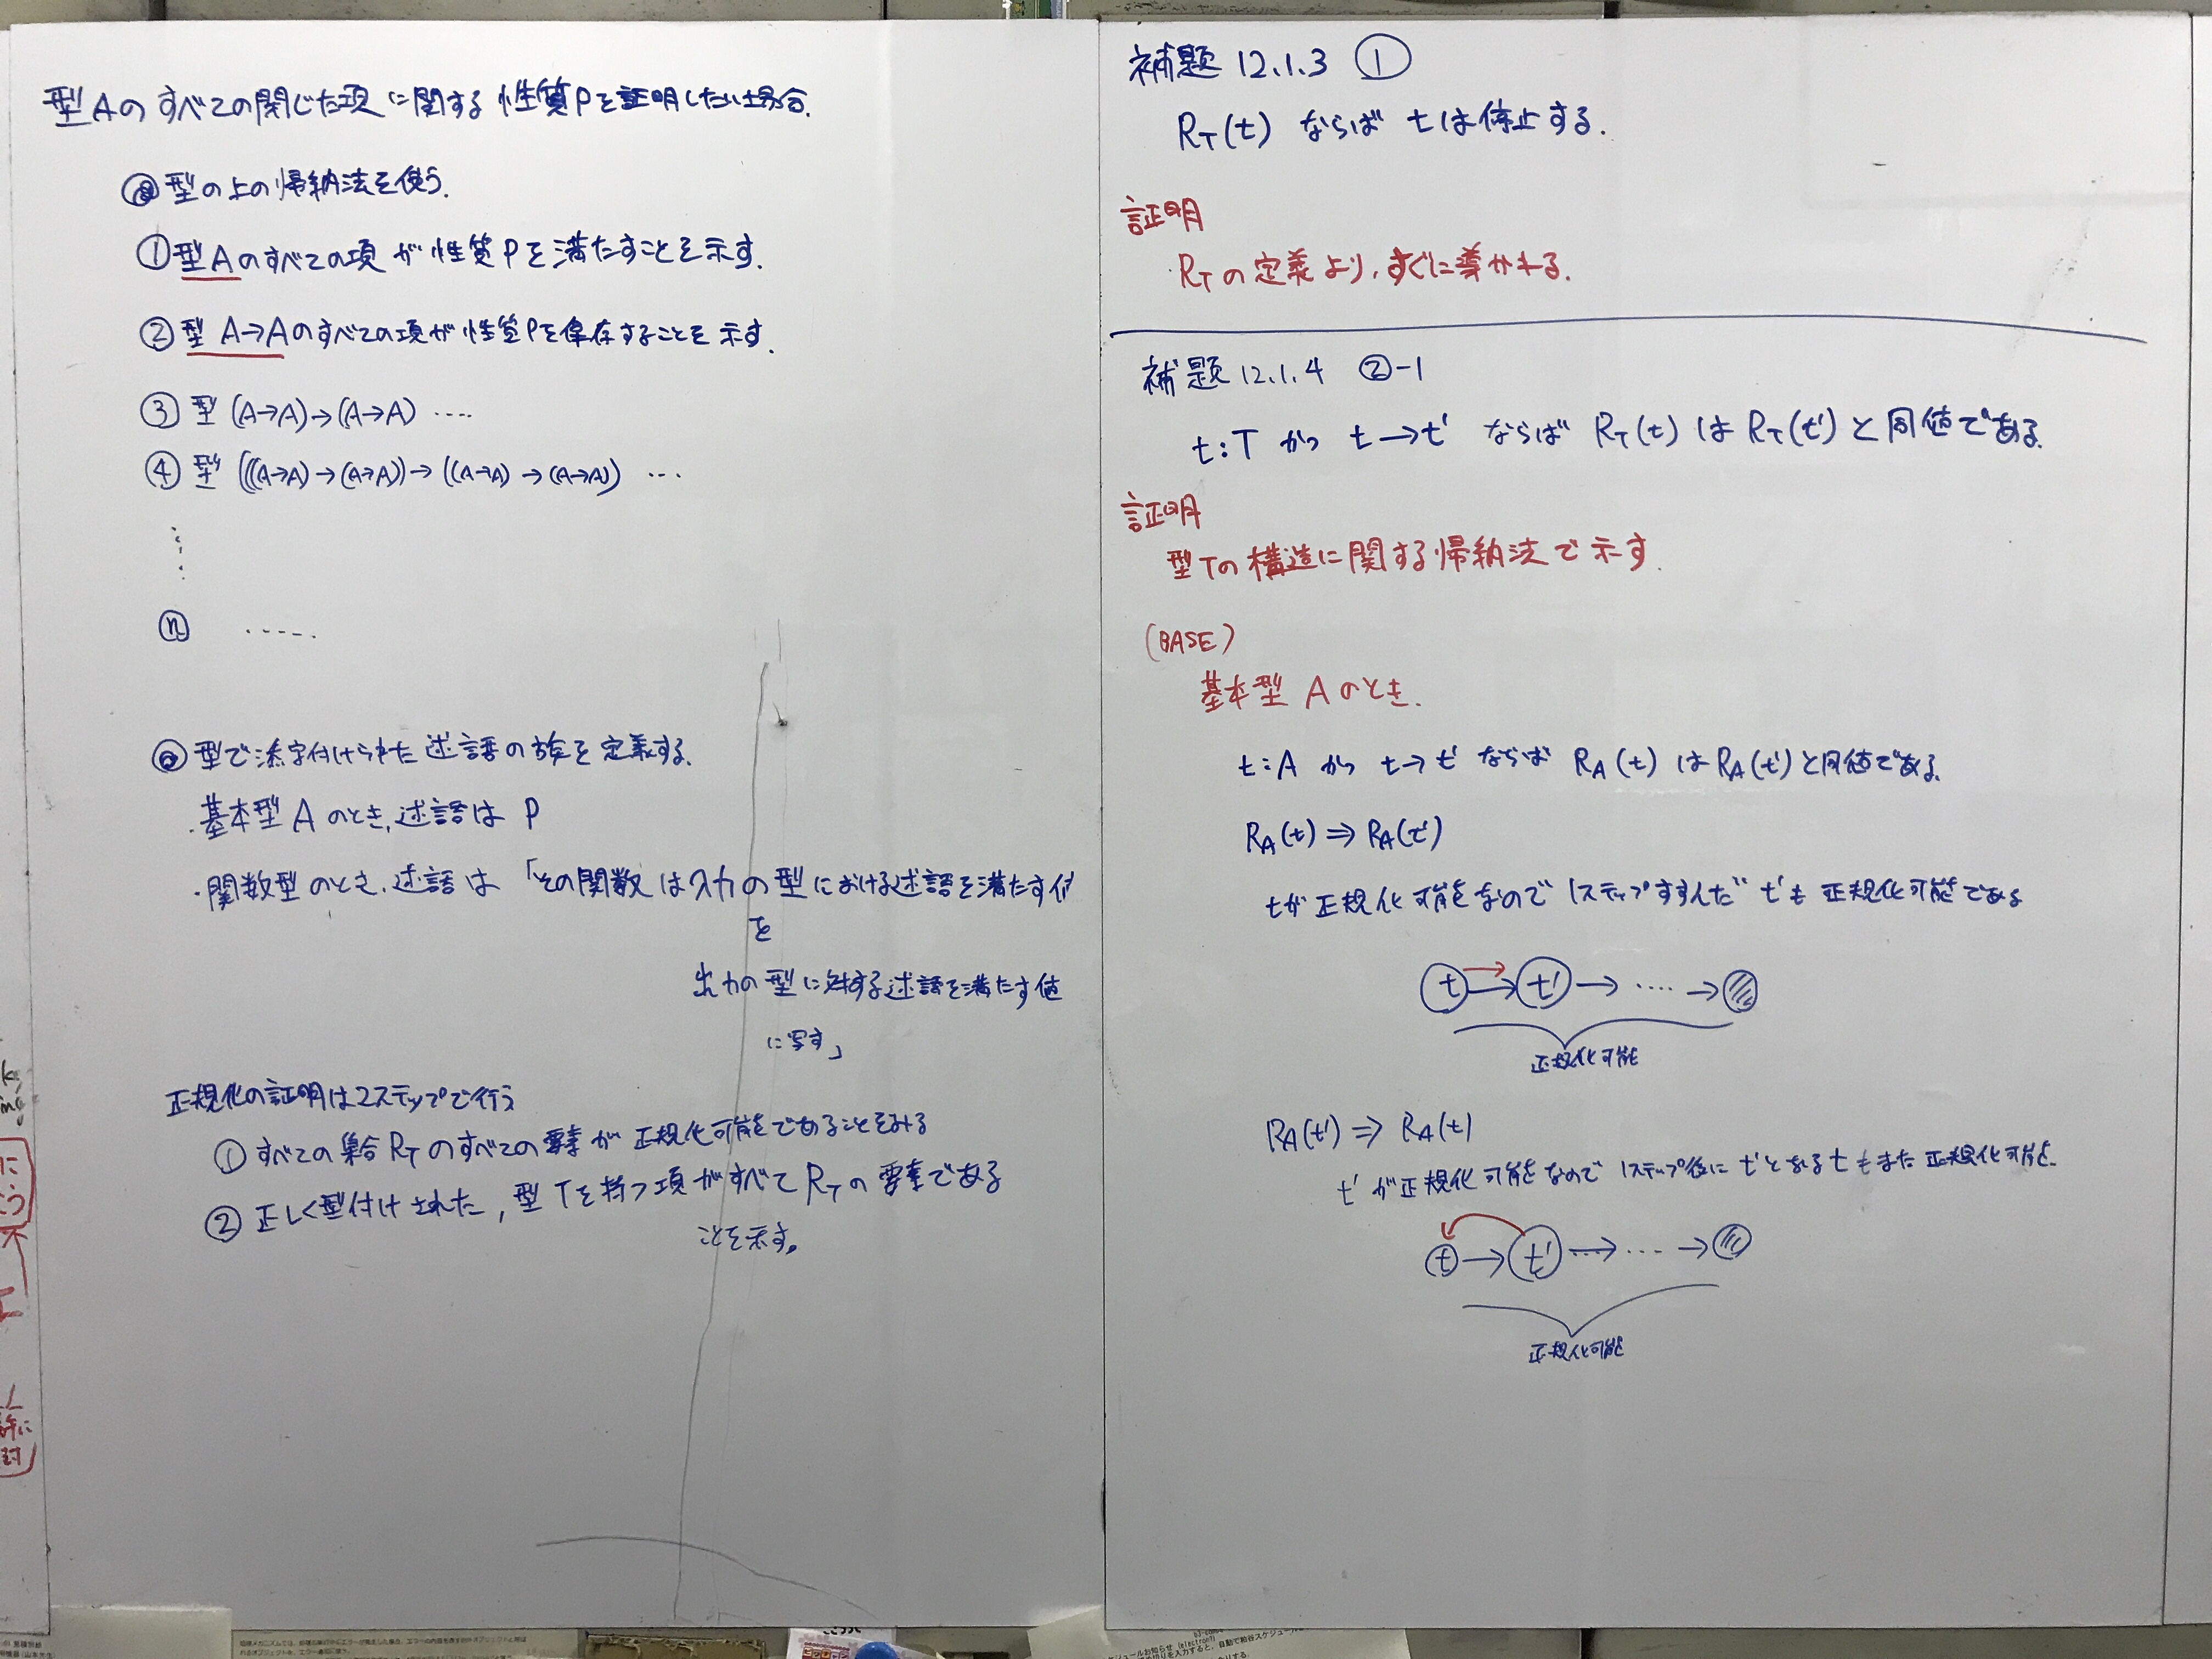 型Aのすべての閉じた項に関する性質Pを証明したい場合.
@型の上の帰納法を使う.
①型Aのすべての項が性質Pを満たすことを示す.
②型 A→Aのすべての項が性質Pを保存することを示す.
③ 型 (A→A)→(A→A) ....
④ 型 (((A→A)→(A→A))→((A→A)→(A→A)) ...
ⓝ .....
@型で添字付けられた述語の族を定義する.
・基本型 A のとき,述語は P
・関数型のとき,述語は「その関数は入力の型における述語を満たす値
を
出力の型に対する述語を満たす値
に写す」
正規化の証明は2ステップで行う
① すべての集合 RT のすべての要素が正規化可能であることをみる
② 正しく型付けされた, 型 Tを持つ項がすべて RT の要素である
ことを示す。
補題 12.1.3 ①
RT(t) ならば tは停止する.
証明
RTの定義より,すぐに導かれる.
補題 12.1.4 ②-1
t:T かつ t→t' ならば RT(t) は RT(t')と同値である.
証明
型Tの構造に関する帰納法で示す.
(BASE)
基本型 A のとき.
t:A かつ t→t' ならば RA(t) は RA(t')と同値である.
RA(t) ⇒ RA(t')
tが正規化可能なので 1ステップすすんだ t'も正規化可能である
t → t' → .... →
正規化可能
RA(t') ⇒ RA(t)
t'が正規化可能なので 1ステップ後に t'となる t もまた 正規化可能.
t → t' → .... →
正規化可能